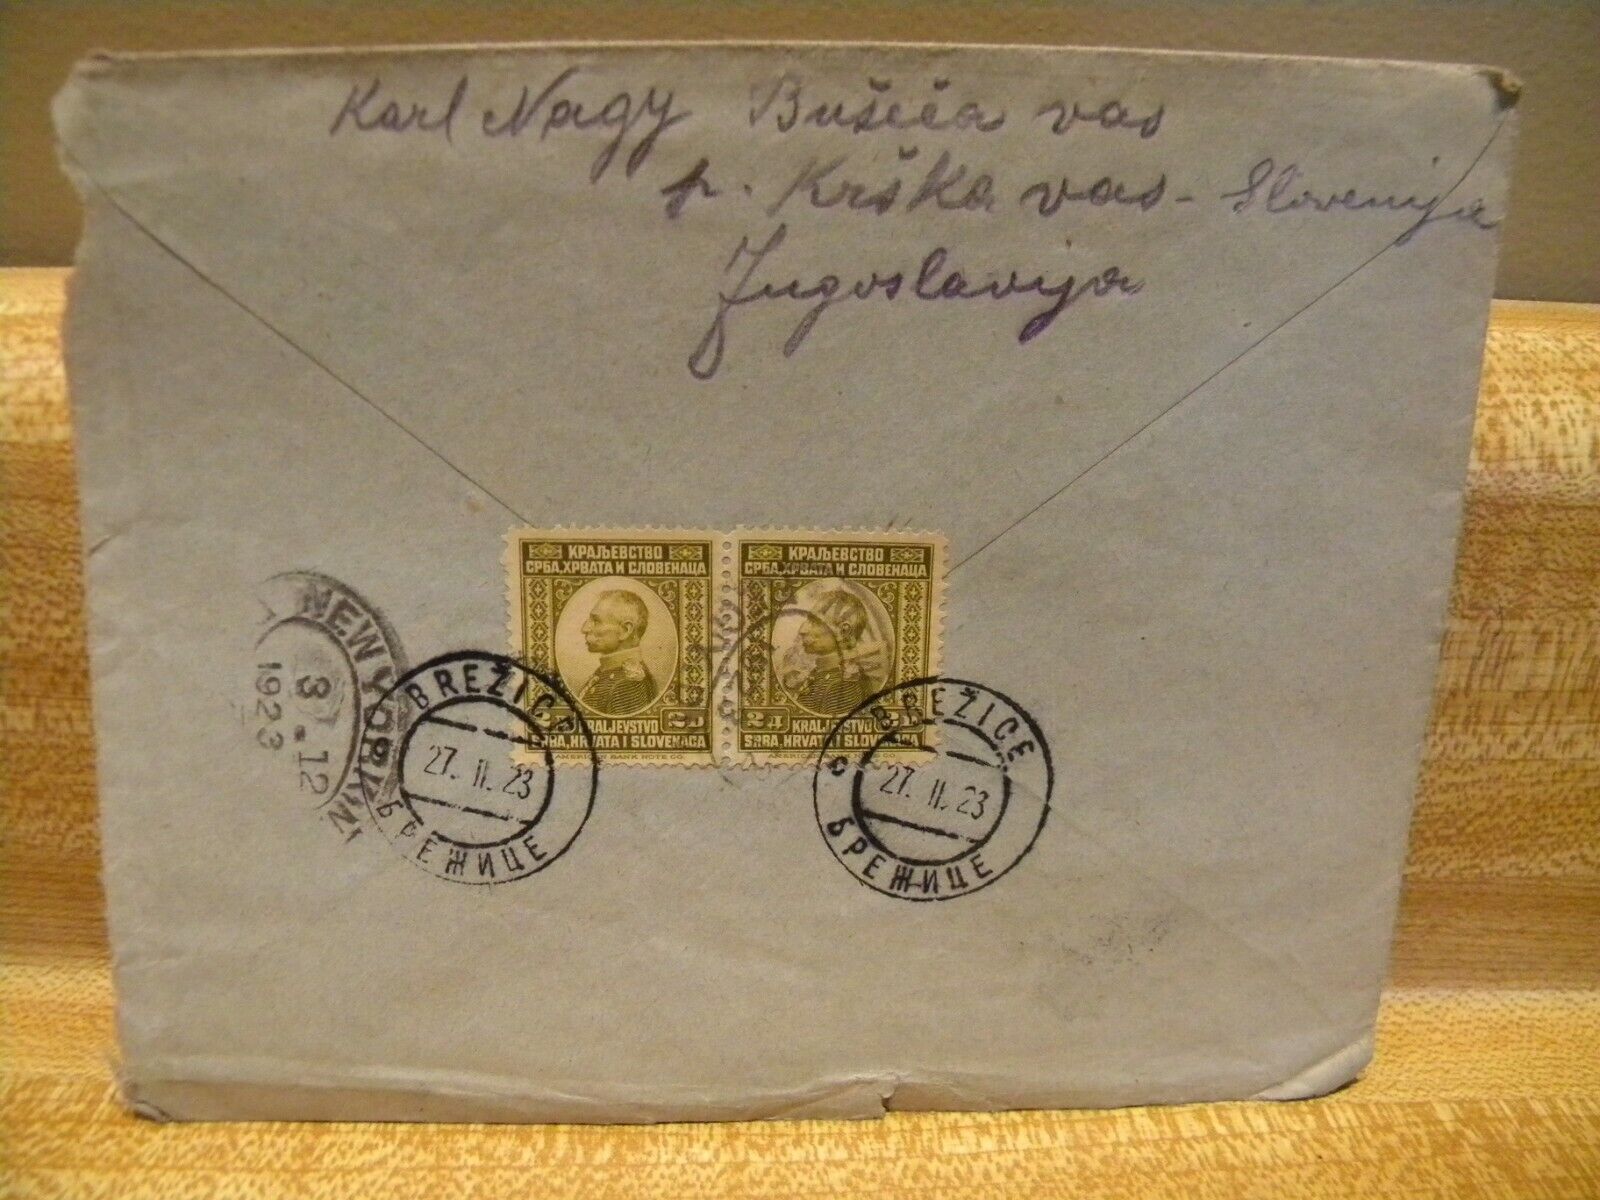 Karl Nagy Bušeča vas
p. Krška vas - Slovenija
Jugoslavija
КРАЉЕВСТВО
СРБА, ХРВАТА И СЛОВЕНАЦА
2 Д KRALJEVSTVO 2 D
SRBA, HRVATA I SLOVENACA
AMERICAN BANK NOTE CO.
КРАЉЕВСТВО
СРБА, ХРВАТА И СЛОВЕНАЦА
2 Д KRALJEVSTVO
SRBA, HRVATA I SLOVENACA
NEW YORK, N.Y.
3-12
1923
BREŽICE
27. II. 23
БРЕЖИЦЕ
BREŽICE
27. II. 23
c
БРЕЖИЦЕ